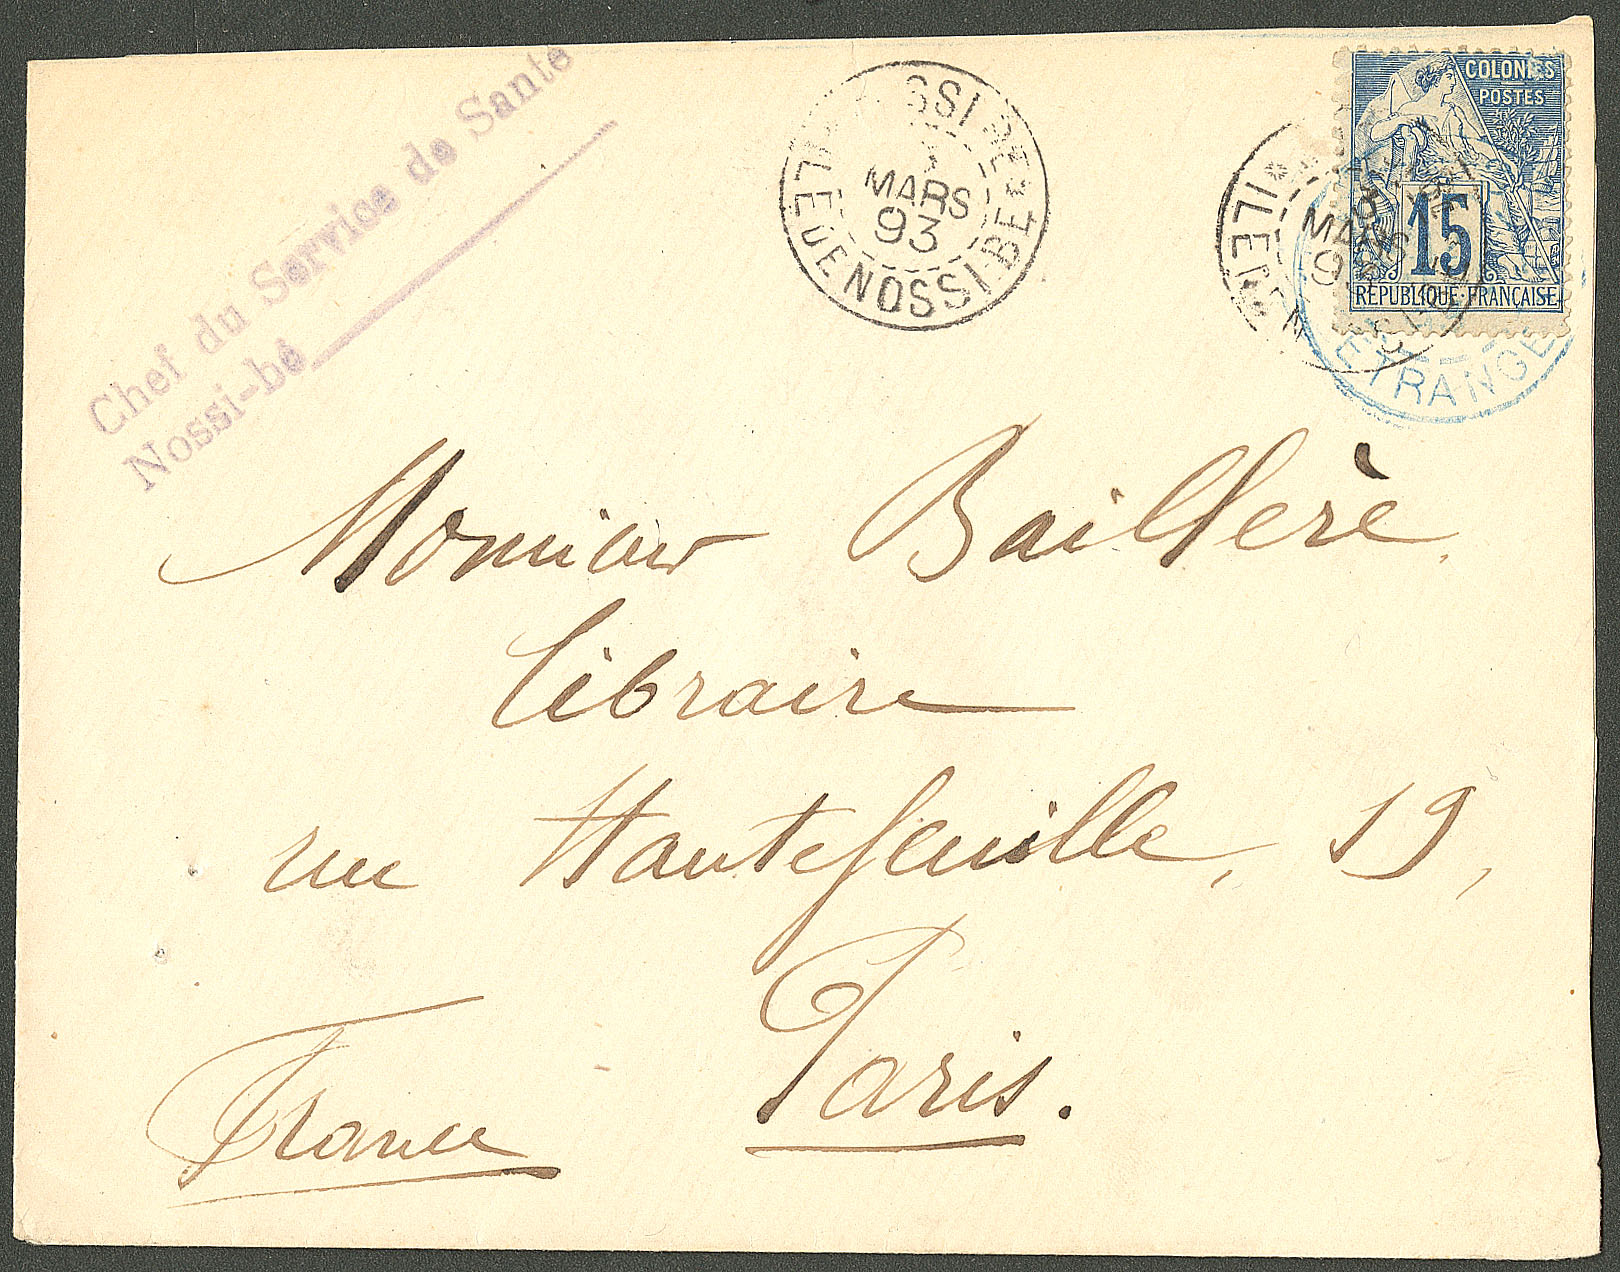 Chef du Service de Santé
Nossi-bé
NOSSI-BÉ
MARS
93
ILE DE NOSSI-BE
COLONIES
POSTES
15
RÉPUBLIQUE FRANÇAISE
ILE
MARS
9
ETRANGE
Monsieur Baillère
Libraire
rue Hautefeuille, 19,
Paris.
France